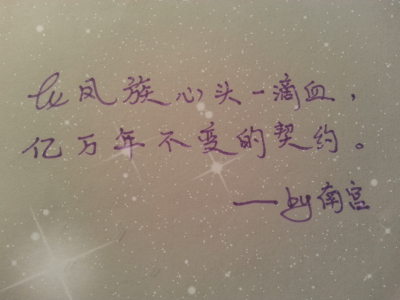 以凤族心头一滴血，
亿万年不变的契约。
——by南宫